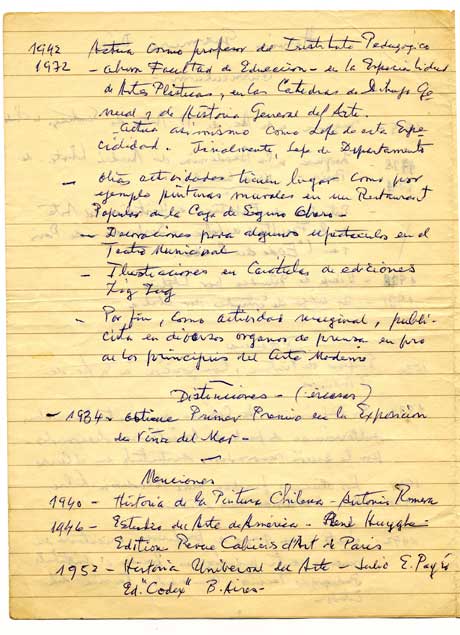 1942 Actúa como profesor del Instituto Pedagógico
1972 - ahora Facultad de Educacion - en la Especialidad
de Artes Plásticas, en las Cátedras de Dibujo Ge
neral y de Historia General del Arte.
Actua asimismo como Jefe de esta Espe
cialidad. Finalmente, Jefe de Departamento
- Otras actividades tienen lugar como por
ejemplo pinturas murales en un Restaurant
Popular de la Caja de Seguro Obrero -
- Decoraciones para algunos espectaculos en el
Teatro Municipal
- Ilustraciones en Caratulas de ediciones
Zig Zag
- Por fin, como actividad marginal, publi-
cista en diversos organos de prensa en pro
de los principios del Arte Moderno
Distinciones - (escasas)
- 1934 - obtiene Primer Premio en la Exposicion
de Viña del Mar -
Menciones
1940 - Historia de la Pintura Chilena - Antonio Romera
1946 - Estudios de Arte de América - René Huyghe -
Edition Revue Cahiers d'Art de Paris
1952 - Historia Universal del Arte - Julio E. Payró
Ed. "Codex" B. Aires -